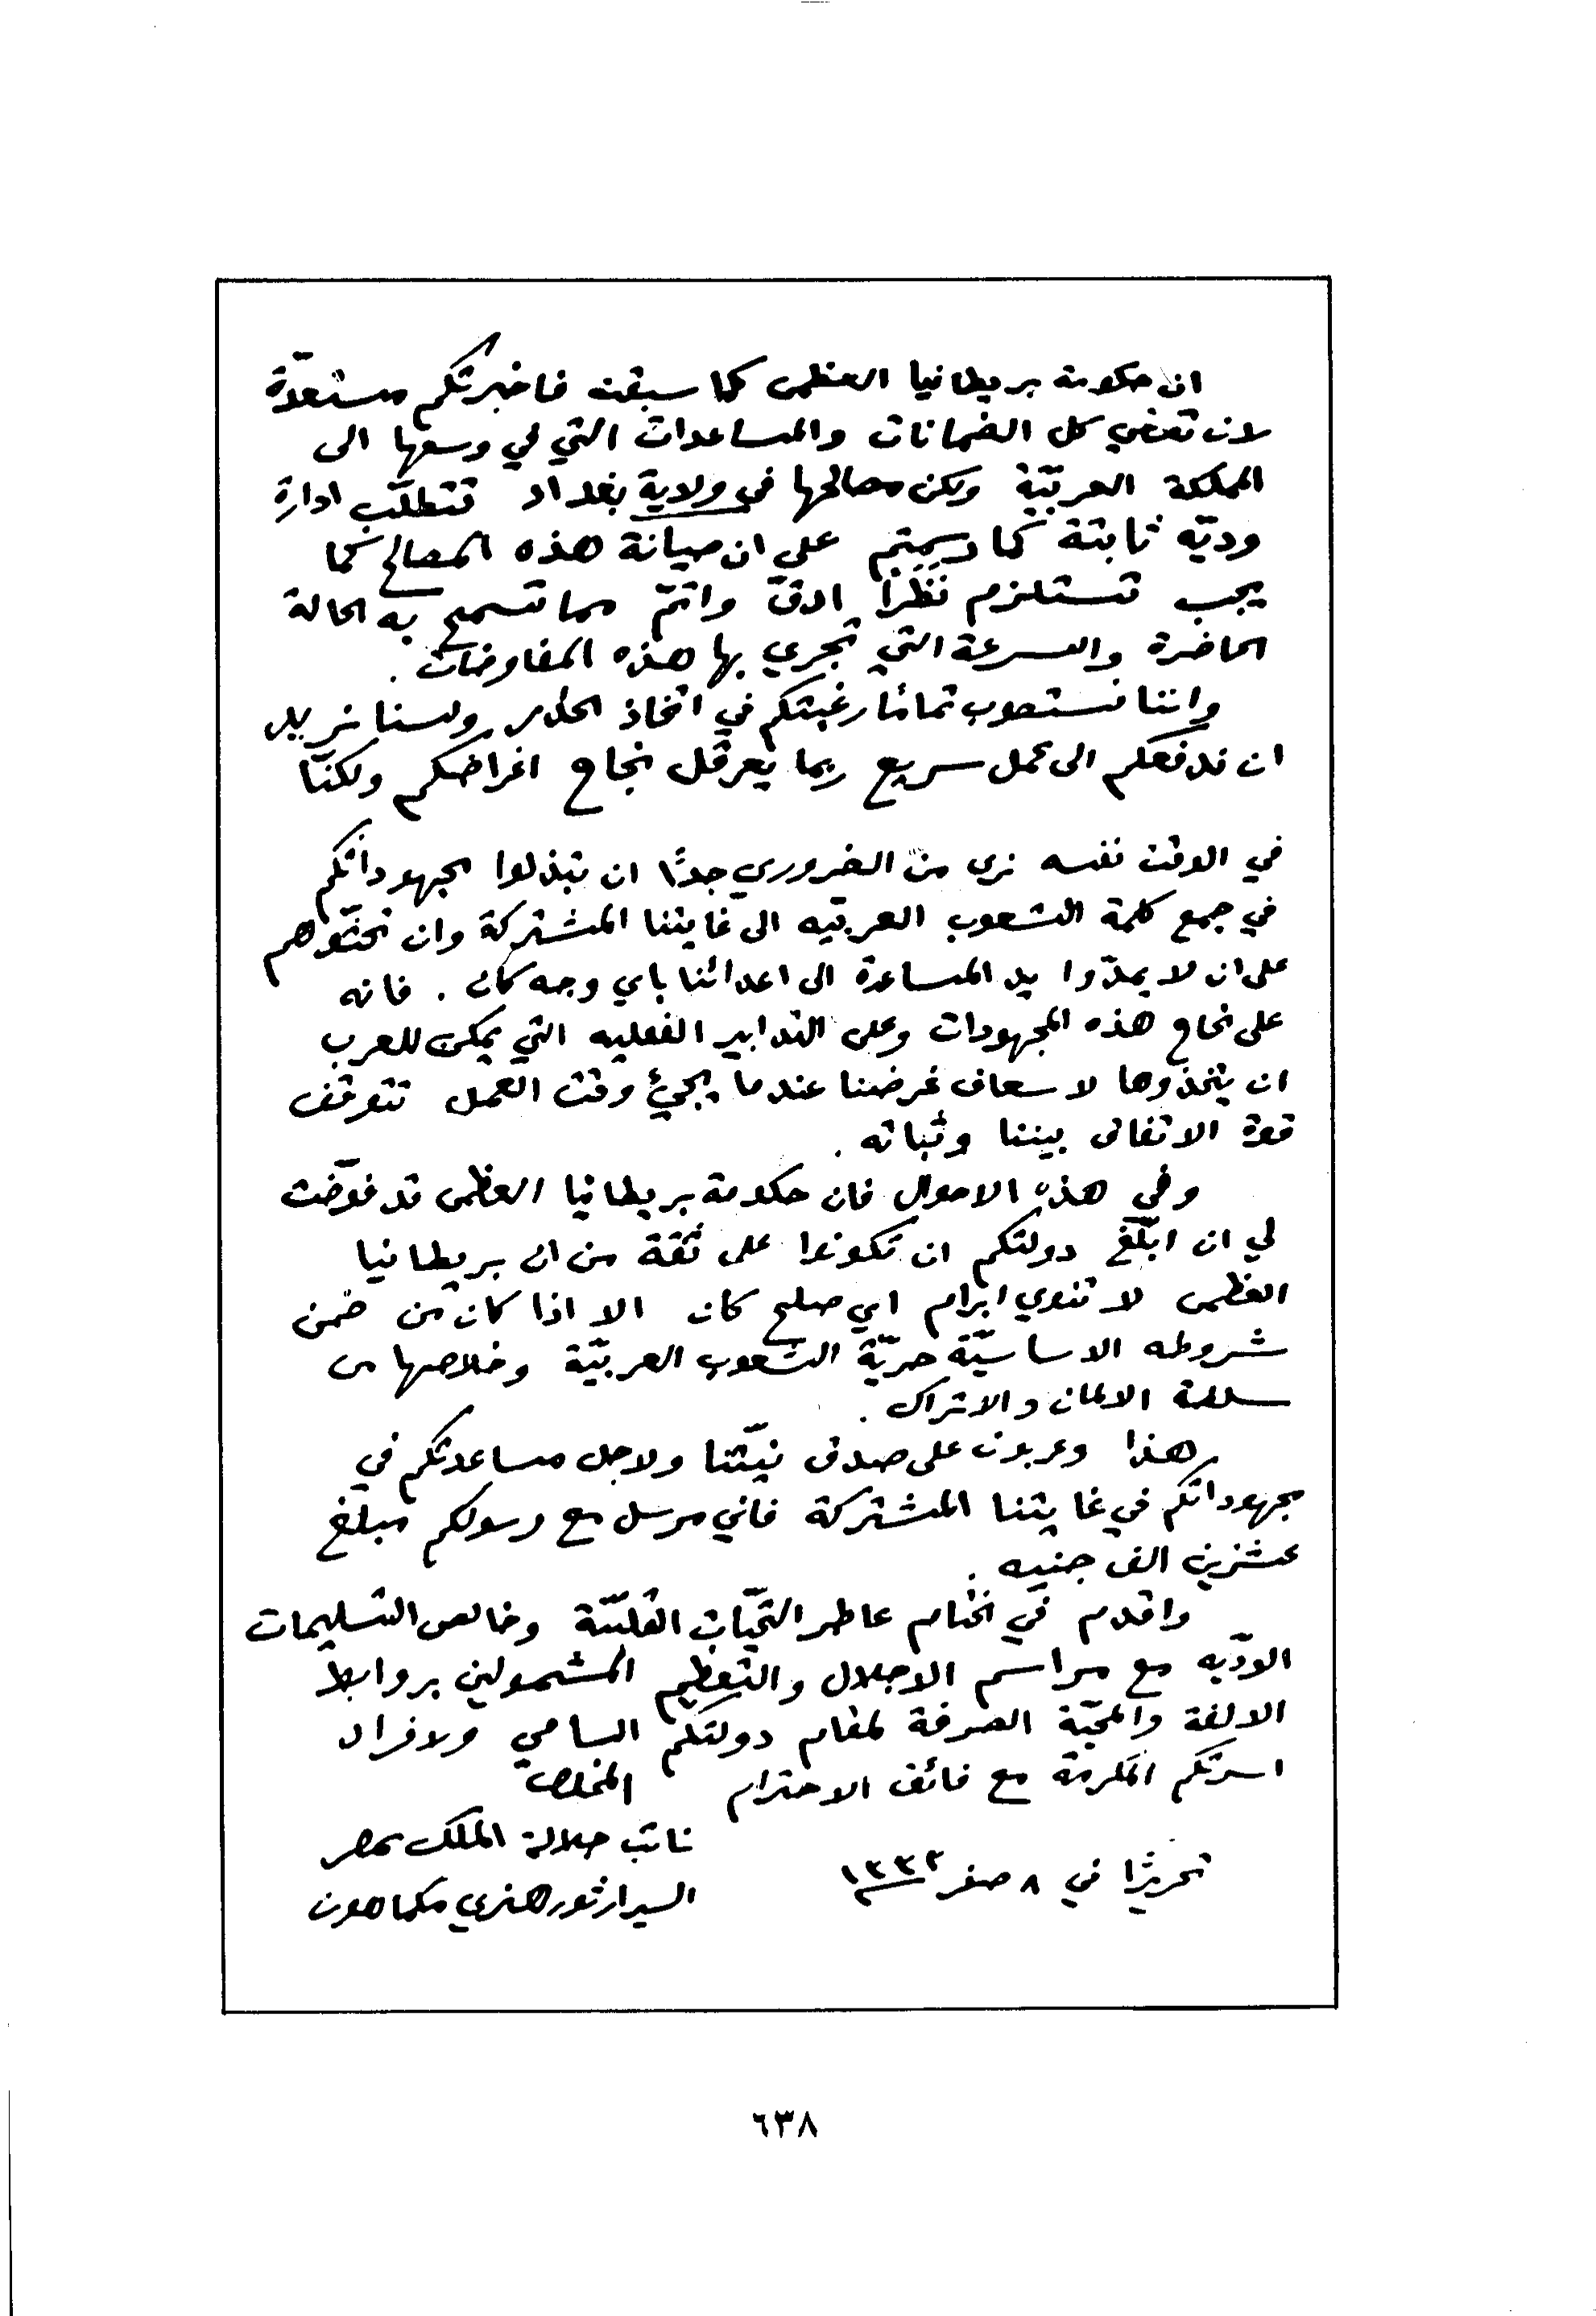 ان حكومة بريطانيا العظمى كما سبقت فاخبرتكم مستعدّة
لان تعطي كل الضمانات والمساعدات التي في وسعها الى
المملكة العربيّة ولكن مصالحها في ولاية بغداد تتطلّب ادارة
وديّه ثابتة كما رسمتم على ان صيانة هذه المصالح كما
يجب تستلزم نظرًا ادقّ واتمّ مما تسمح به الحالة
الحاضرة والسرعة التي تجري بها هذه المفاوضات .
واننا نستصوب تمامًا رغبتكم في اتخاذ الحذر ولسنا نريد
ان ندفعكم الى عمل سريع ربما يعرقل نجاح اغراضكم ولكنّا
في الوقت نفسه نرى من الضروري جدًا ان تبذلوا مجهوداتكم
في جمع كلمة الشعوب العربيّه الى غايتنا المشتركة وان تحثّوهم
على ان لا يمدّوا يد المساعدة الى اعدائنا باي وجه كان . فانه
على نجاح هذه المجهودات وعلى التدابير الفعليه التي يمكن للعرب
ان يتخذوها لاسعاف غرضنا عندما يجيء وقت العمل تتوقف
قوة الاتفاق بيننا وثباته .
وفي هذه الاحوال فان حكومة بريطانيا العظمى قد فوّضت
لي ان ابلّغ دولتكم ان تكونوا على ثقة من ان بريطانيا
العظمى لا تنوي ابرام اي صلح كان الا اذا كان من ضمن
شروطه الاساسيّة حريّة الشعوب العربيّة وخلاصها من
سلطة الالمان والاتراك .
هذا وعربون على صدق نيّتنا ولاجل مساعدتكم في
مجهوداتكم في غايتنا المشتركة فاني مرسل مع رسولكم مبلغ
عشرين الف جنيه .
واقدم في الختام عاطر التحيّات القلبيّة وخالص التسليمات
الودّيه مع مراسم الاجلال والتعظيم المشمولين بروابط
الالفة والمحبّة الصرفة لمقام دولتكم السامي ولافراد
اسرتكم المكرمة مع فائق الاحترام المخلص
نائب جلالة الملك بمصر
تحريرًا في ٨ صفر ١٣٣٤
السير ارثور هنري مكماهون
٦٣٨